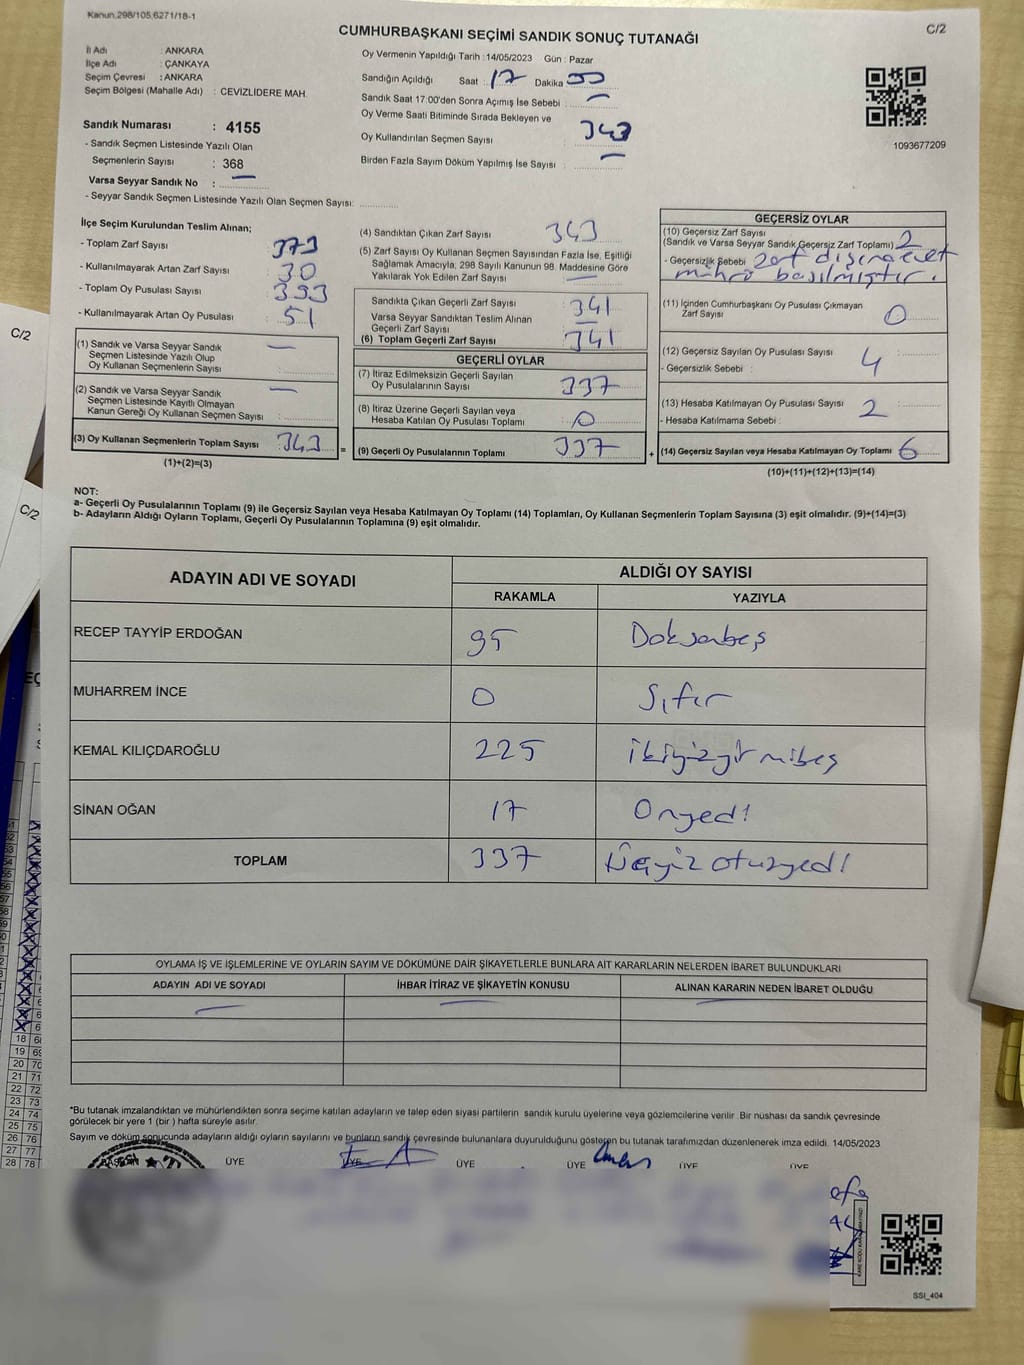 Kanun,298/105,6271/18-1
C/2
CUMHURBAŞKANI SEÇİMİ SANDIK SONUÇ TUTANAĞI
İl Adı : ANKARA
İlçe Adı : ÇANKAYA
Seçim Çevresi : ANKARA
Seçim Bölgesi (Mahalle Adı) : CEVIZLIDERE MAH.
Sandık Numarası : 4155
- Sandık Seçmen Listesinde Yazılı Olan
Seçmenlerin Sayısı : 368
Varsa Seyyar Sandık No : —
- Seyyar Sandık Seçmen Listesinde Yazılı Olan Seçmen Sayısı:
Oy Vermenin Yapıldığı Tarih :14/05/2023 Gün : Pazar
Sandığın Açıldığı Saat : 17 Dakika 00
Sandık Saat 17:00'den Sonra Açımış İse Sebebi : —
Oy Verme Saati Bitiminde Sırada Bekleyen ve
Oy Kullandırılan Seçmen Sayısı : 343
Birden Fazla Sayım Döküm Yapılmış İse Sayısı : —
1093677209
İlçe Seçim Kurulundan Teslim Alınan;
- Toplam Zarf Sayısı 373
- Kullanılmayarak Artan Zarf Sayısı 30
- Toplam Oy Pusulası Sayısı 393
- Kullanılmayarak Artan Oy Pusulası 51
(1) Sandık ve Varsa Seyyar Sandık
Seçmen Listesinde Yazılı Olup
Oy Kullanan Seçmenlerin Sayısı : —
(2) Sandık ve Varsa Seyyar Sandık
Seçmen Listesinde Kayıtlı Olmayan
Kanun Gereği Oy Kullanan Seçmen Sayısı : —
(3) Oy Kullanan Seçmenlerin Toplam Sayısı 343 =
(1)+(2)=(3)
(4) Sandıktan Çıkan Zarf Sayısı 343
(5) Zarf Sayısı Oy Kullanan Seçmen Sayısından Fazla İse, Eşitliği
Sağlamak Amacıyla; 298 Sayılı Kanunun 98. Maddesine Göre
Yakılarak Yok Edilen Zarf Sayısı : —
Sandıkta Çıkan Geçerli Zarf Sayısı : 341
Varsa Seyyar Sandıktan Teslim Alınan
Geçerli Zarf Sayısı : —
(6) Toplam Geçerli Zarf Sayısı : 341
GEÇERLİ OYLAR
(7) İtiraz Edilmeksizin Geçerli Sayılan
Oy Pusulalarının Sayısı : 337
(8) İtiraz Üzerine Geçerli Sayılan veya
Hesaba Katılan Oy Pusulası Toplamı : 0
(9) Geçerli Oy Pusulalarının Toplamı 337 +
GEÇERSİZ OYLAR
(10) Geçersiz Zarf Sayısı
(Sandık ve Varsa Seyyar Sandık Geçersiz Zarf Toplamı) 2
- Geçersizlik Sebebi : zarf dışına evet
mührü basılmıştır.
(11) İçinden Cumhurbaşkanı Oy Pusulası Çıkmayan
Zarf Sayısı : 0
(12) Geçersiz Sayılan Oy Pusulası Sayısı : 4
- Geçersizlik Sebebi :
(13) Hesaba Katılmayan Oy Pusulası Sayısı : 2
- Hesaba Katılmama Sebebi :
(14) Geçersiz Sayılan veya Hesaba Katılmayan Oy Toplamı 6
(10)+(11)+(12)+(13)=(14)
NOT:
a- Geçerli Oy Pusulalarının Toplamı (9) ile Geçersiz Sayılan veya Hesaba Katılmayan Oy Toplamı (14) Toplamları, Oy Kullanan Seçmenlerin Toplam Sayısına (3) eşit olmalıdır. (9)+(14)=(3)
b- Adayların Aldığı Oyların Toplamı, Geçerli Oy Pusulalarının Toplamına (9) eşit olmalıdır.
ADAYIN ADI VE SOYADI
ALDIĞI OY SAYISI
RAKAMLA YAZIYLA
RECEP TAYYİP ERDOĞAN 95 Doksanbeş
MUHARREM İNCE 0 Sıfır
KEMAL KILIÇDAROĞLU 225 ikiyüzyirmibeş
SİNAN OĞAN 17 Onyedi
TOPLAM 337 Üçyüz otuzyedi
OYLAMA İŞ VE İŞLEMLERİNE VE OYLARIN SAYIM VE DÖKÜMÜNE DAİR ŞİKAYETLERLE BUNLARA AİT KARARLARIN NELERDEN İBARET BULUNDUKLARI
ADAYIN ADI VE SOYADI İHBAR İTİRAZ VE ŞİKAYETİN KONUSU ALINAN KARARIN NEDEN İBARET OLDUĞU
— — —
*Bu tutanak imzalandıktan ve mühürlendikten sonra seçime katılan adayların ve talep eden siyasi partilerin sandık kurulu üyelerine veya gözlemcilerine verilir. Bir nüshası da sandık çevresinde
görülecek bir yere 1 (bir ) hafta süreyle asılır.
Sayım ve döküm sonucunda adayların aldığı oyların sayılarını ve bunların sandık çevresinde bulunanlara duyurulduğunu gösteren bu tutanak tarafımızdan düzenlenerek imza edildi. 14/05/2023
BAŞKAN ÜYE ÜYE ÜYE ÜYE ÜYE ÜYE
SSİ_404
C/2
C/2
18
19 69
20 70
21 71
22 72
23 73
24 74
25 75
26 76
27 77
28 78